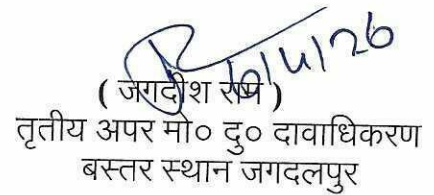 ( जगदीश राम )
तृतीय अपर मो० दु० दावाधिकरण
बस्तर स्थान जगदलपुर